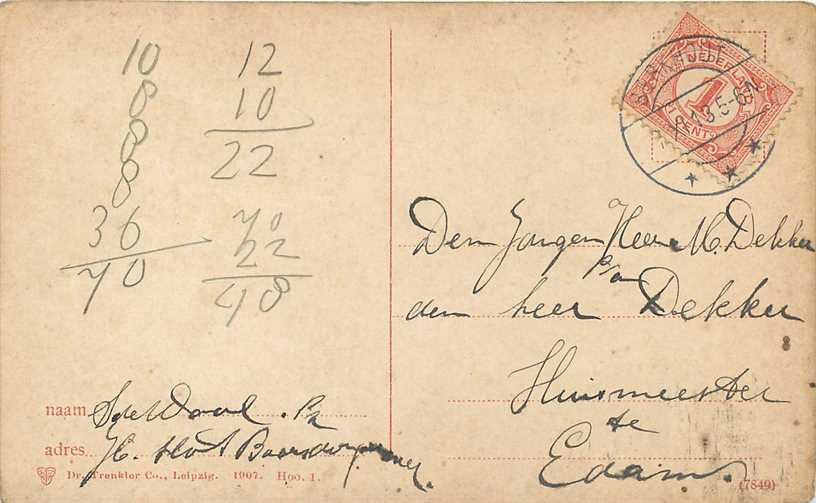 10
8
8
8
36
70
12
10
22
70
22
48
NEDERLAND
1
CENT
Den Jongen Heer M. Dekker
p/a
den heer Dekker
Huismeester
te
Edam.
naam S de Waal. Pz
adres H.
Dr. Trenkler Co., Leipzig. 1907. Hoo. 1.
(7849)